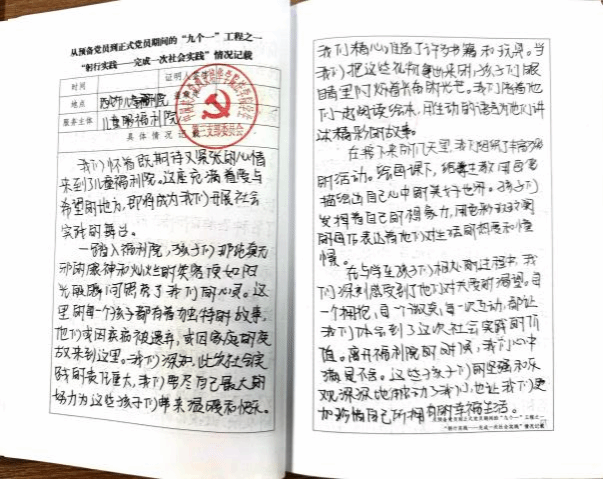 从预备党员到正式党员期间的“九个一”工程之一
“躬行实践——完成一次社会实践”情况记载
时间
证明人
地点
儿童福利院
服务主体
儿童福利院
具体情况记
第三支部委员会
我们怀着既期待又紧张的心情
来到了儿童福利院。这座充满着爱与
希望的地方,即将成为我们开展社会
实践的舞台。
一踏入福利院,孩子们那纯真无
邪的眼神和灿烂的笑容便如阳
光般瞬间照亮了我们的心灵。这
里的每一个孩子都有着独特的故事,
他们或因疾病被遗弃,或因家庭的变
故来到这里。我们深知,此次社会实
践的责任重大,我们要尽自己最大的
努力为这些孩子们带来温暖和快乐。
我们精心准备了许多书籍和玩具。当
我们把这些礼物拿出来时,孩子们眼
睛里闪烁着兴奋的光芒。我们陪着他
们一起阅读绘本,用生动的语言为他们讲
述精彩的故事。
在接下来的几天里,我们开展了丰富多彩
的活动。绘画课上,孩子们用画笔
描绘出自己心中的美好世界。孩子们
发挥着自己的想象力,用色彩
的画作表达着他们对生活的热爱和憧
憬。
在与这些孩子们相处的过程中,我
们深刻感受到了他们对关爱的渴望。每
一个拥抱,每一个微笑,每一次互动,都让
我们体会到了这次社会实践的价
值。离开福利院的时候,我们心中
满是不舍。这些孩子们的坚强和乐
观深深地感动了我们,也让我们更
加珍惜自己所拥有的幸福生活。
从预备党员到正式党员期间的“九个一”工程之一
“躬行实践——完成一次社会实践”情况记载